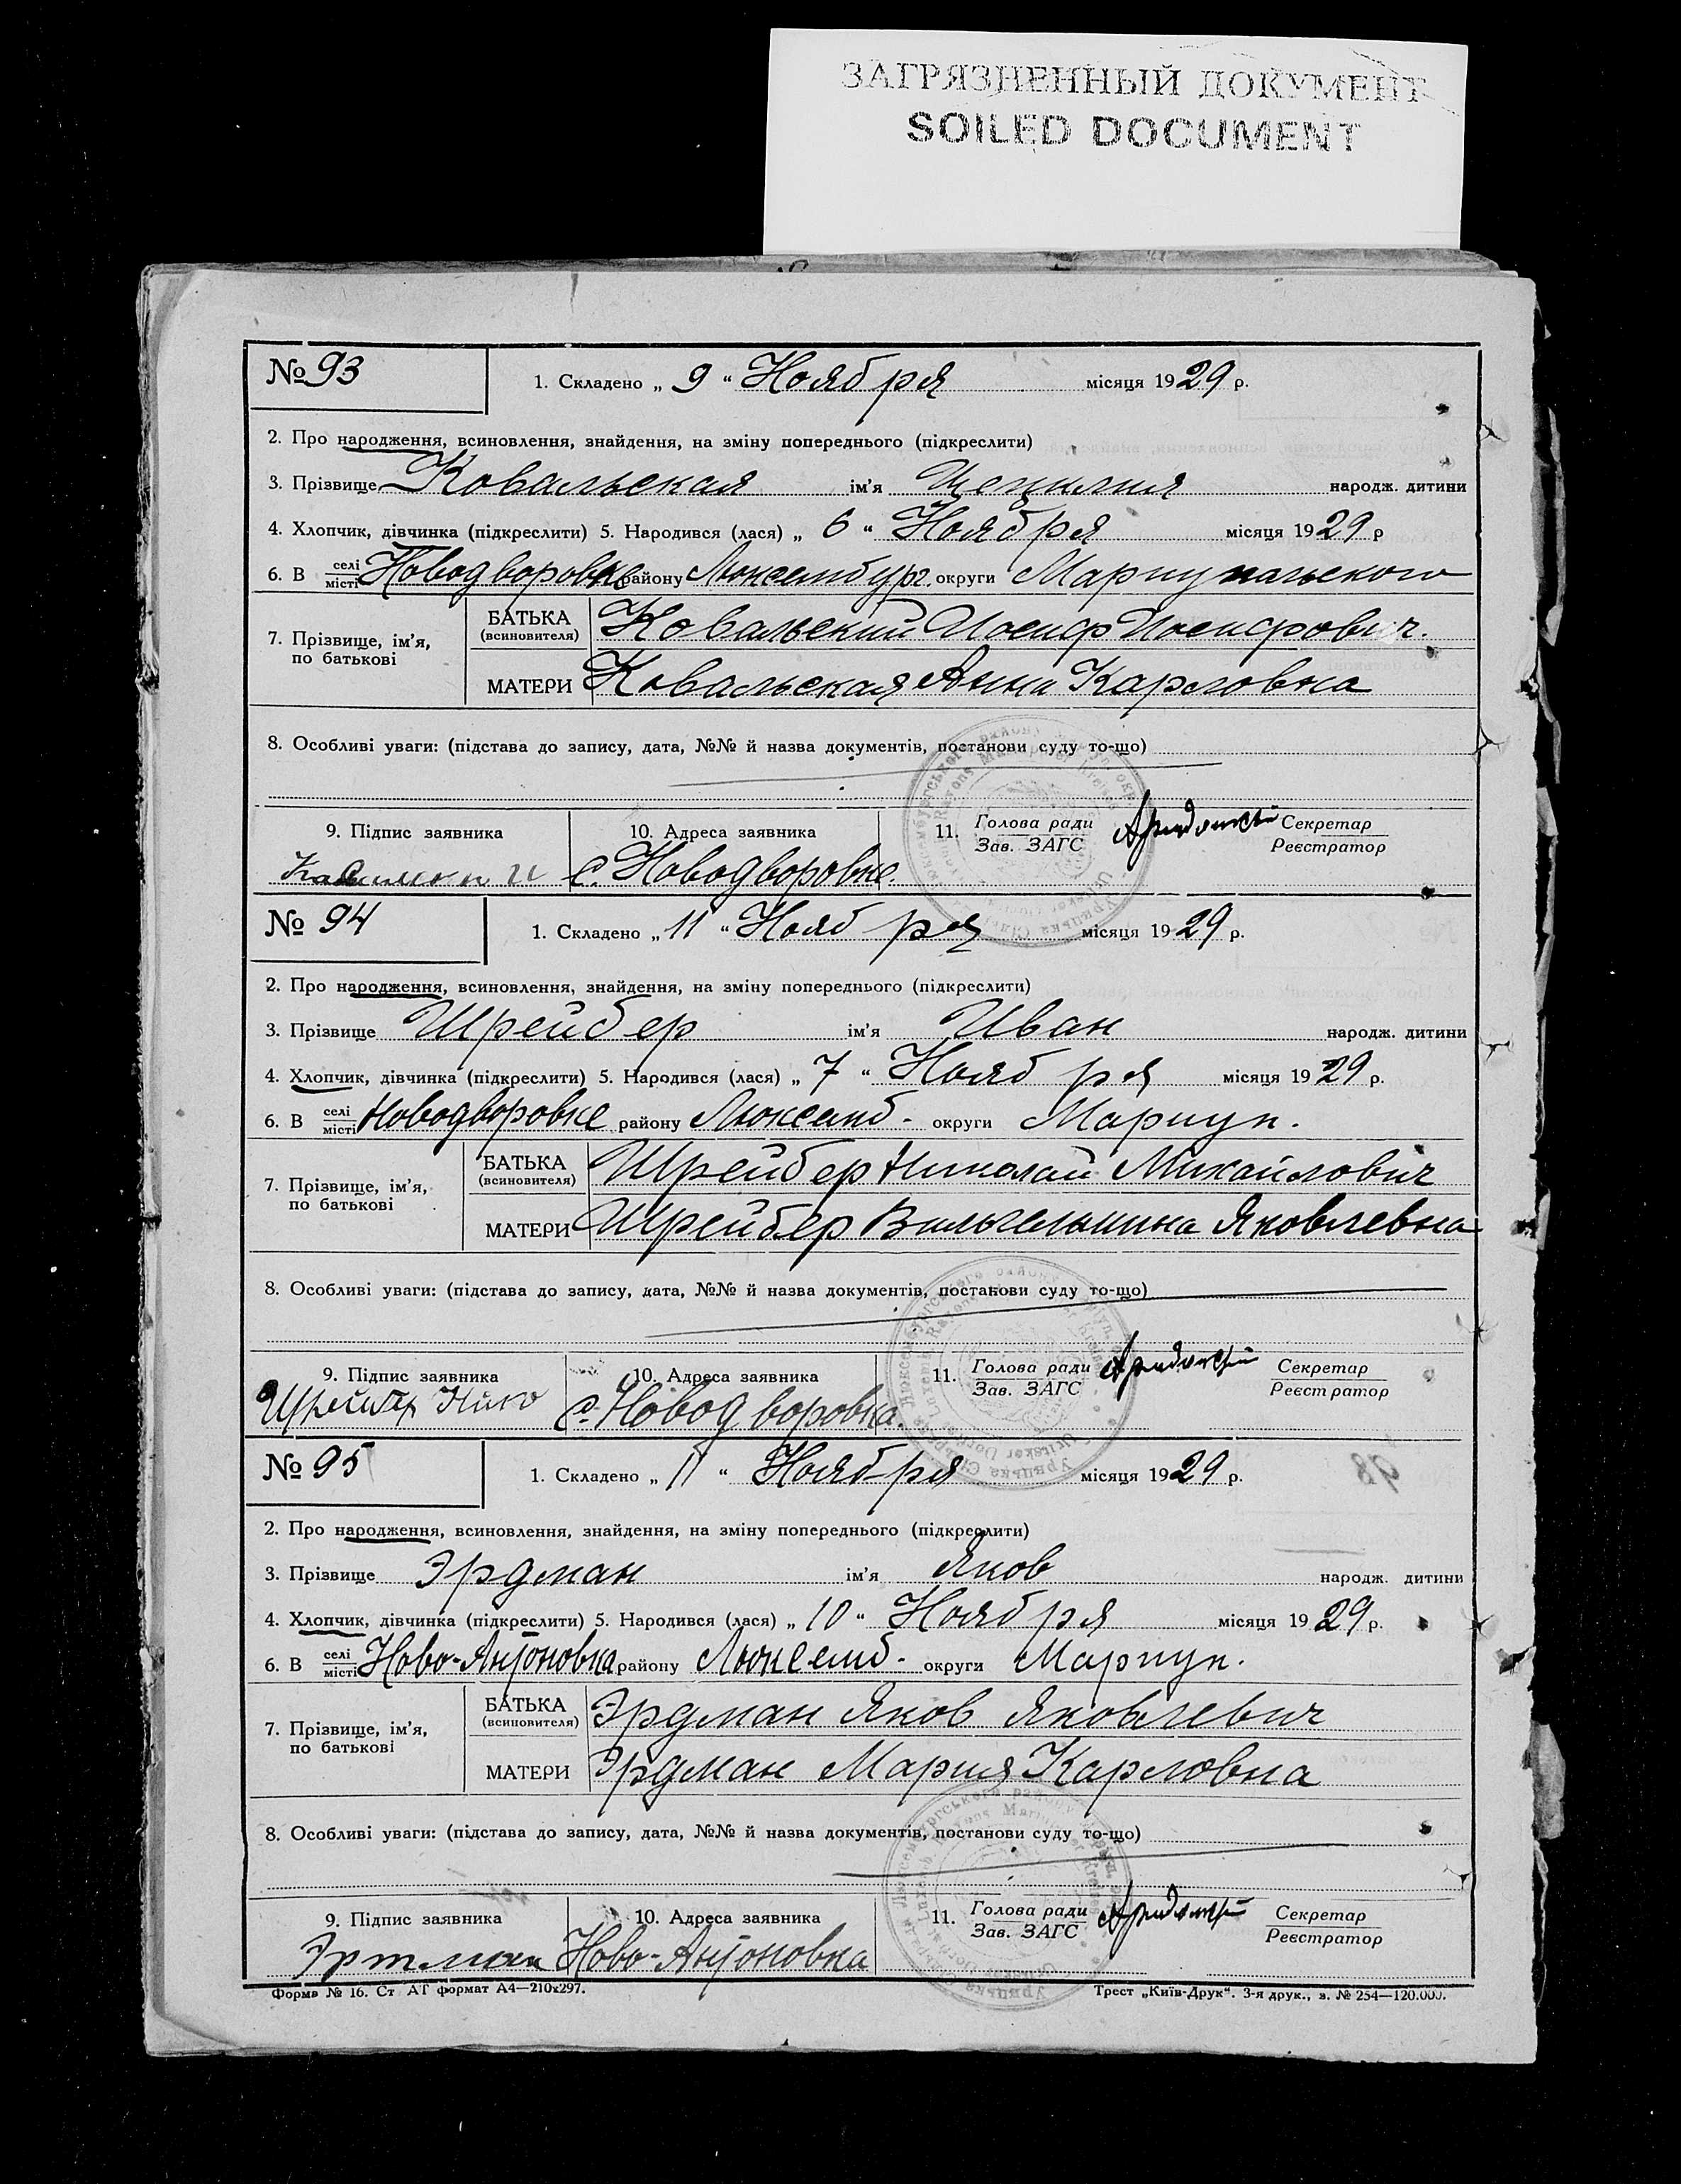 ЗАГРЯЗНЕННЫЙ ДОКУМЕНТ
SOILED DOCUMENT
№ 93
1. Складено „ 9 “ Ноября місяця 1929 р.
2. Про народження, всиновлення, знайдення, на зміну попереднього (підкреслити)
3. Прізвище Ковальская ім’я Цецилия народж. дитини
4. Хлопчик, дівчинка (підкреслити) 5. Народився (лася) „ 6 “ Ноября місяця 1929 р
6. В селі/місті Новодворовке району Люксембург. округи Мариупольского
7. Прізвище, ім’я, по батькові
БАТЬКА (всиновителя) Ковальский Иосиф Иосифович.
МАТЕРИ Ковальская Анна Карловна
8. Особливі уваги: (підстава до запису, дата, №№ й назва документів, постанови суду то-що)
9. Підпис заявника 10. Адреса заявника 11. Голова ради Секретар
Зав. ЗАГС Реєстратор
с. Новодворовке.
№ 94
1. Складено „ 11 “ Ноября місяця 1929 р.
2. Про народження, всиновлення, знайдення, на зміну попереднього (підкреслити)
3. Прізвище Шрейбер ім’я Иван народж. дитини
4. Хлопчик, дівчинка (підкреслити) 5. Народився (лася) „ 7 “ Ноября місяця 1929 р.
6. В селі/місті Новодворовке району Люксемб. округи Мариуп.
7. Прізвище, ім’я, по батькові
БАТЬКА (всиновителя) Шрейбер Николай Михайлович
МАТЕРИ Шрейбер Вильгельмина Яковлевна
8. Особливі уваги: (підстава до запису, дата, №№ й назва документів, постанови суду то-що)
9. Підпис заявника 10. Адреса заявника 11. Голова ради Секретар
Зав. ЗАГС Реєстратор
с. Новодворовка.
№ 95
1. Складено „ 11 “ Ноября місяця 1929 р.
2. Про народження, всиновлення, знайдення, на зміну попереднього (підкреслити)
3. Прізвище Эрдман ім’я Яков народж. дитини
4. Хлопчик, дівчинка (підкреслити) 5. Народився (лася) „ 10 “ Ноября місяця 1929 р.
6. В селі/місті Ново-Антоновка району Люксемб. округи Мариуп.
7. Прізвище, ім’я, по батькові
БАТЬКА (всиновителя) Эрдман Яков Яковлевич
МАТЕРИ Эрдман Мария Карловна
8. Особливі уваги: (підстава до запису, дата, №№ й назва документів, постанови суду то-що)
9. Підпис заявника 10. Адреса заявника 11. Голова ради Секретар
Зав. ЗАГС Реєстратор
Эртман Ново-Антоновка
Форма № 16. Ст АТ формат А4—210х297. Трест „Київ-Друк“. 3-я друк., з. № 254—120.000.